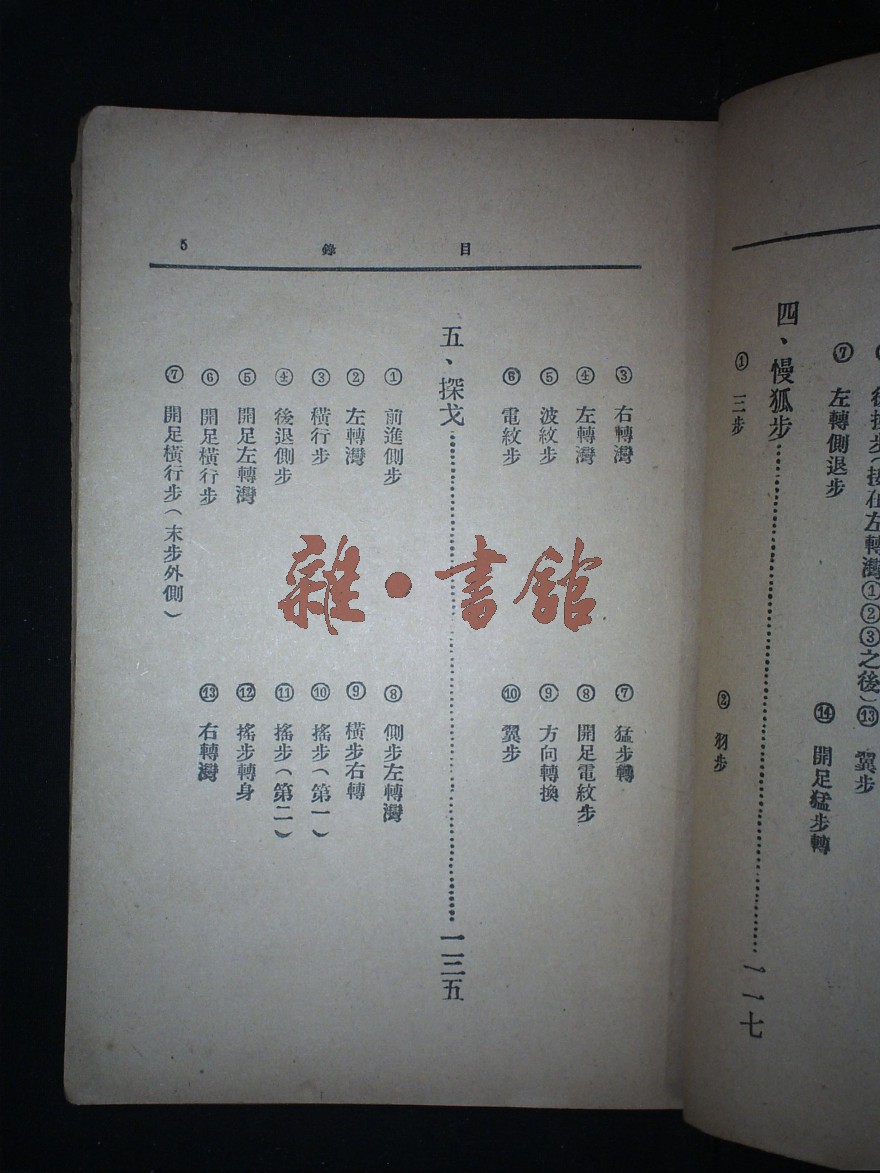 步(接在左轉灣①②③之後)
⑬ 翼步
⑦ 左轉側退步
⑭ 開足猛步轉
四、慢狐步……一一七
① 三步
② 羽步
目錄 5
③ 右轉灣
⑦ 猛步轉
④ 左轉灣
⑧ 開足電紋步
⑤ 波紋步
⑨ 方向轉換
⑥ 電紋步
⑩ 翼步
五、探戈……一三五
① 前進側步
⑧ 側步左轉灣
② 左轉灣
⑨ 橫步右轉
③ 橫行步
⑩ 搖步(第一)
④ 後退側步
⑪ 搖步(第二)
⑤ 開足左轉灣
⑫ 搖步轉身
⑥ 開足橫行步
⑬ 右轉灣
⑦ 開足橫行步(末步外側)
雜·書館